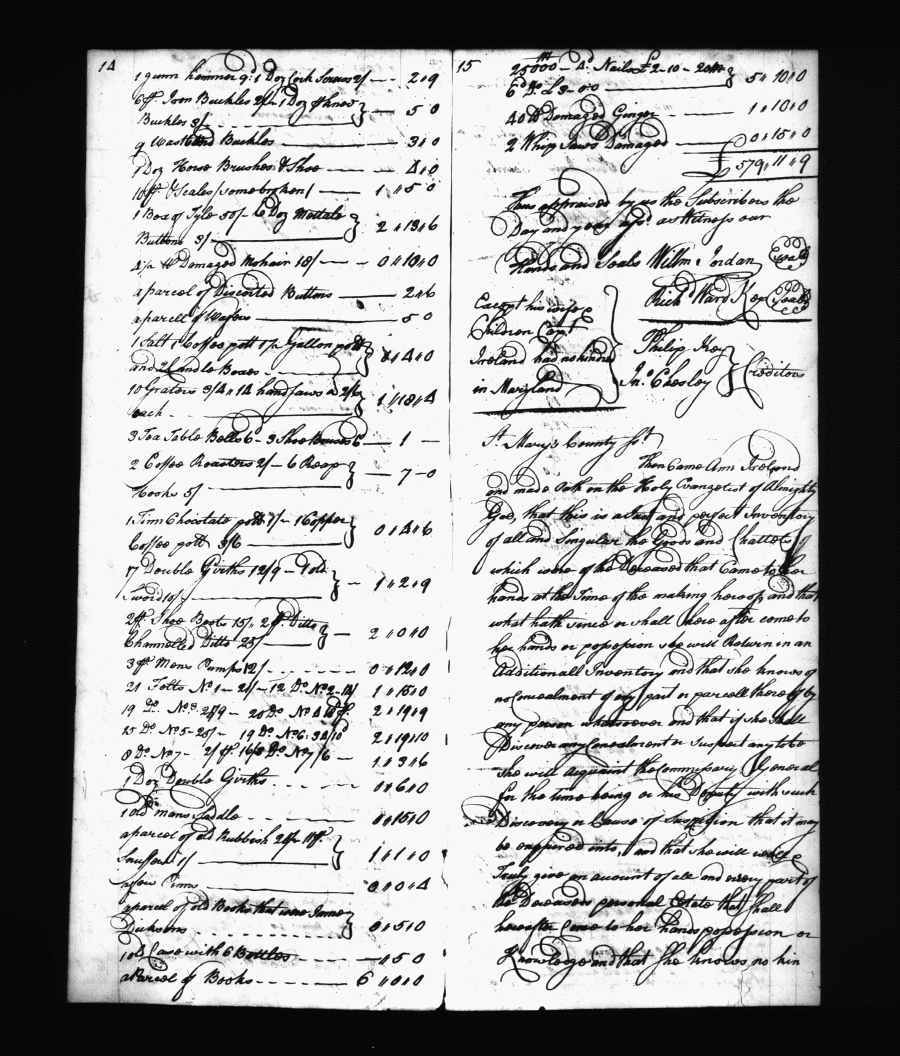 14
1 gunn hammer 9d: 1 Doz Cork Screws 2/ — 2 " 9
6 pr. Iron Buckles 2/ — 1 Doz Shoe
Buckles 3/ — 5 0
9 Wastband Buckles — 3 " 0
1 Doz Horse Brushes & Shoe — 4 " 0
10 pr. Scales / some broken / — 1 " 5 0
1 Box of Tyle 50/ — 6 Doz Mettale
Buttons 3/ — 2 " 13 " 6
Damaged Mohair 18/ — 0 " 18 " 0
a parcel of Discorted Buttons — 2 " 6
a parcell of Wafers — 5 0
1 Salt 1 Coffee pott 1 Gallon pott
and 2 Candle Boxes — " 4 " 0
10 Graters 3/4 " 14 handsaws a 2/6
each — 1 " 18 " 4
3 Tea Table Bells 6d — 3 Shoe 6d — 1 —
2 Coffee Roasters 2/ — 6 Reap
hooks 5/ — 7 — 0
1 Tinn Chocolate pott 1/ — 1 Copper
Coffee pott 3/6 — 0 " 4 " 6
17 Double Girths 12/9 — 1 old
Sword 10/ — 1 " 2 " 9
2 pr. Shoe Boots 15/. 2 pr Ditto
Channelled Ditto 25/ — 2 " 0 " 0
3 pr Mens Pumps 12/ — 0 " 12 " 0
21 Felts No. 1 — 21/ — 12 Do. No. 2 — 14/ 1 " 15 " 0
19 Do. No. 3. 27/9 — 20 Do. No 4 2 " 19 " 9
15 Do No 5 — 25/ — 19 Do No 6: 2 " 19 " 0
8 Do. No 7 — Do No 7/6 — 1 " 3 " 6
1 Doz Double Girths — 0 " 6 " 0
1 old mans Saddle — 0 " 15 " 0
a parcel of old Rubbish
Snuffers 1/ — 1 " 1 " 0
a few Pinns — 0 " 0 " 4
a parcel of old Books that were James
Dicksons — 0 " 5 " 0
1 old Case with 6 Bottles — " 5 0
a Parcel of Books — 6 " 0 " 0
15
25000 — 4d Nails £2 — 10 —
6d Do. £3 — 0 : 0 — 5 " 10 " 0
40 lb Damaged Ginger — 1 " 10 " 0
2 Whip Saws Damaged — 0 " 15 " 0
£ 579 " 11 " 9
Thus appraised by us the Subscribers the
Day and year afsd. as Witness our
Hands and Seals Willm. Jordan (Seal)
Richd Ward Key (Seal)
Except his wife
Children Capt
Ireland had no kindred
in Maryland
Philip Key
Jno. Chesley
Creditors
St. Mary's County Sst
Then Came Ann Ireland
and made Oath on the Holy Evangelist of Almighty
God, that this is a Just and perfect Inventory
of all and Singular the Goods and Chattels
which were of the Deceased that Came to her
hands at the Time of the making hereof, and that
what hath since or shall hereafter come to
her hands or possession she will Return in an
Additionall Inventory and that she knows of
no Concealment of any part or parcell thereof by
any person whatsoever and that if she shall
Discover any Concealment or Suspect any to be
She will Acquaint the Commissary General
for the time being or his Deputy with such
Discovery or Cause of Suspicion that it may
be enquired into, and that she will
Truly give an account of all and every part of
the Deceaseds personal Estate that shall
hereafter Come to her hands possession or
Knowledge and that She knows no kin